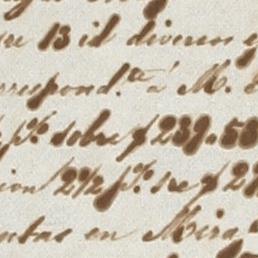 re 13 id diverson
rrespond.ta á M.
p% sobre $ 239.58
ion 2½ p% s/re $ 2
ntas en Mira